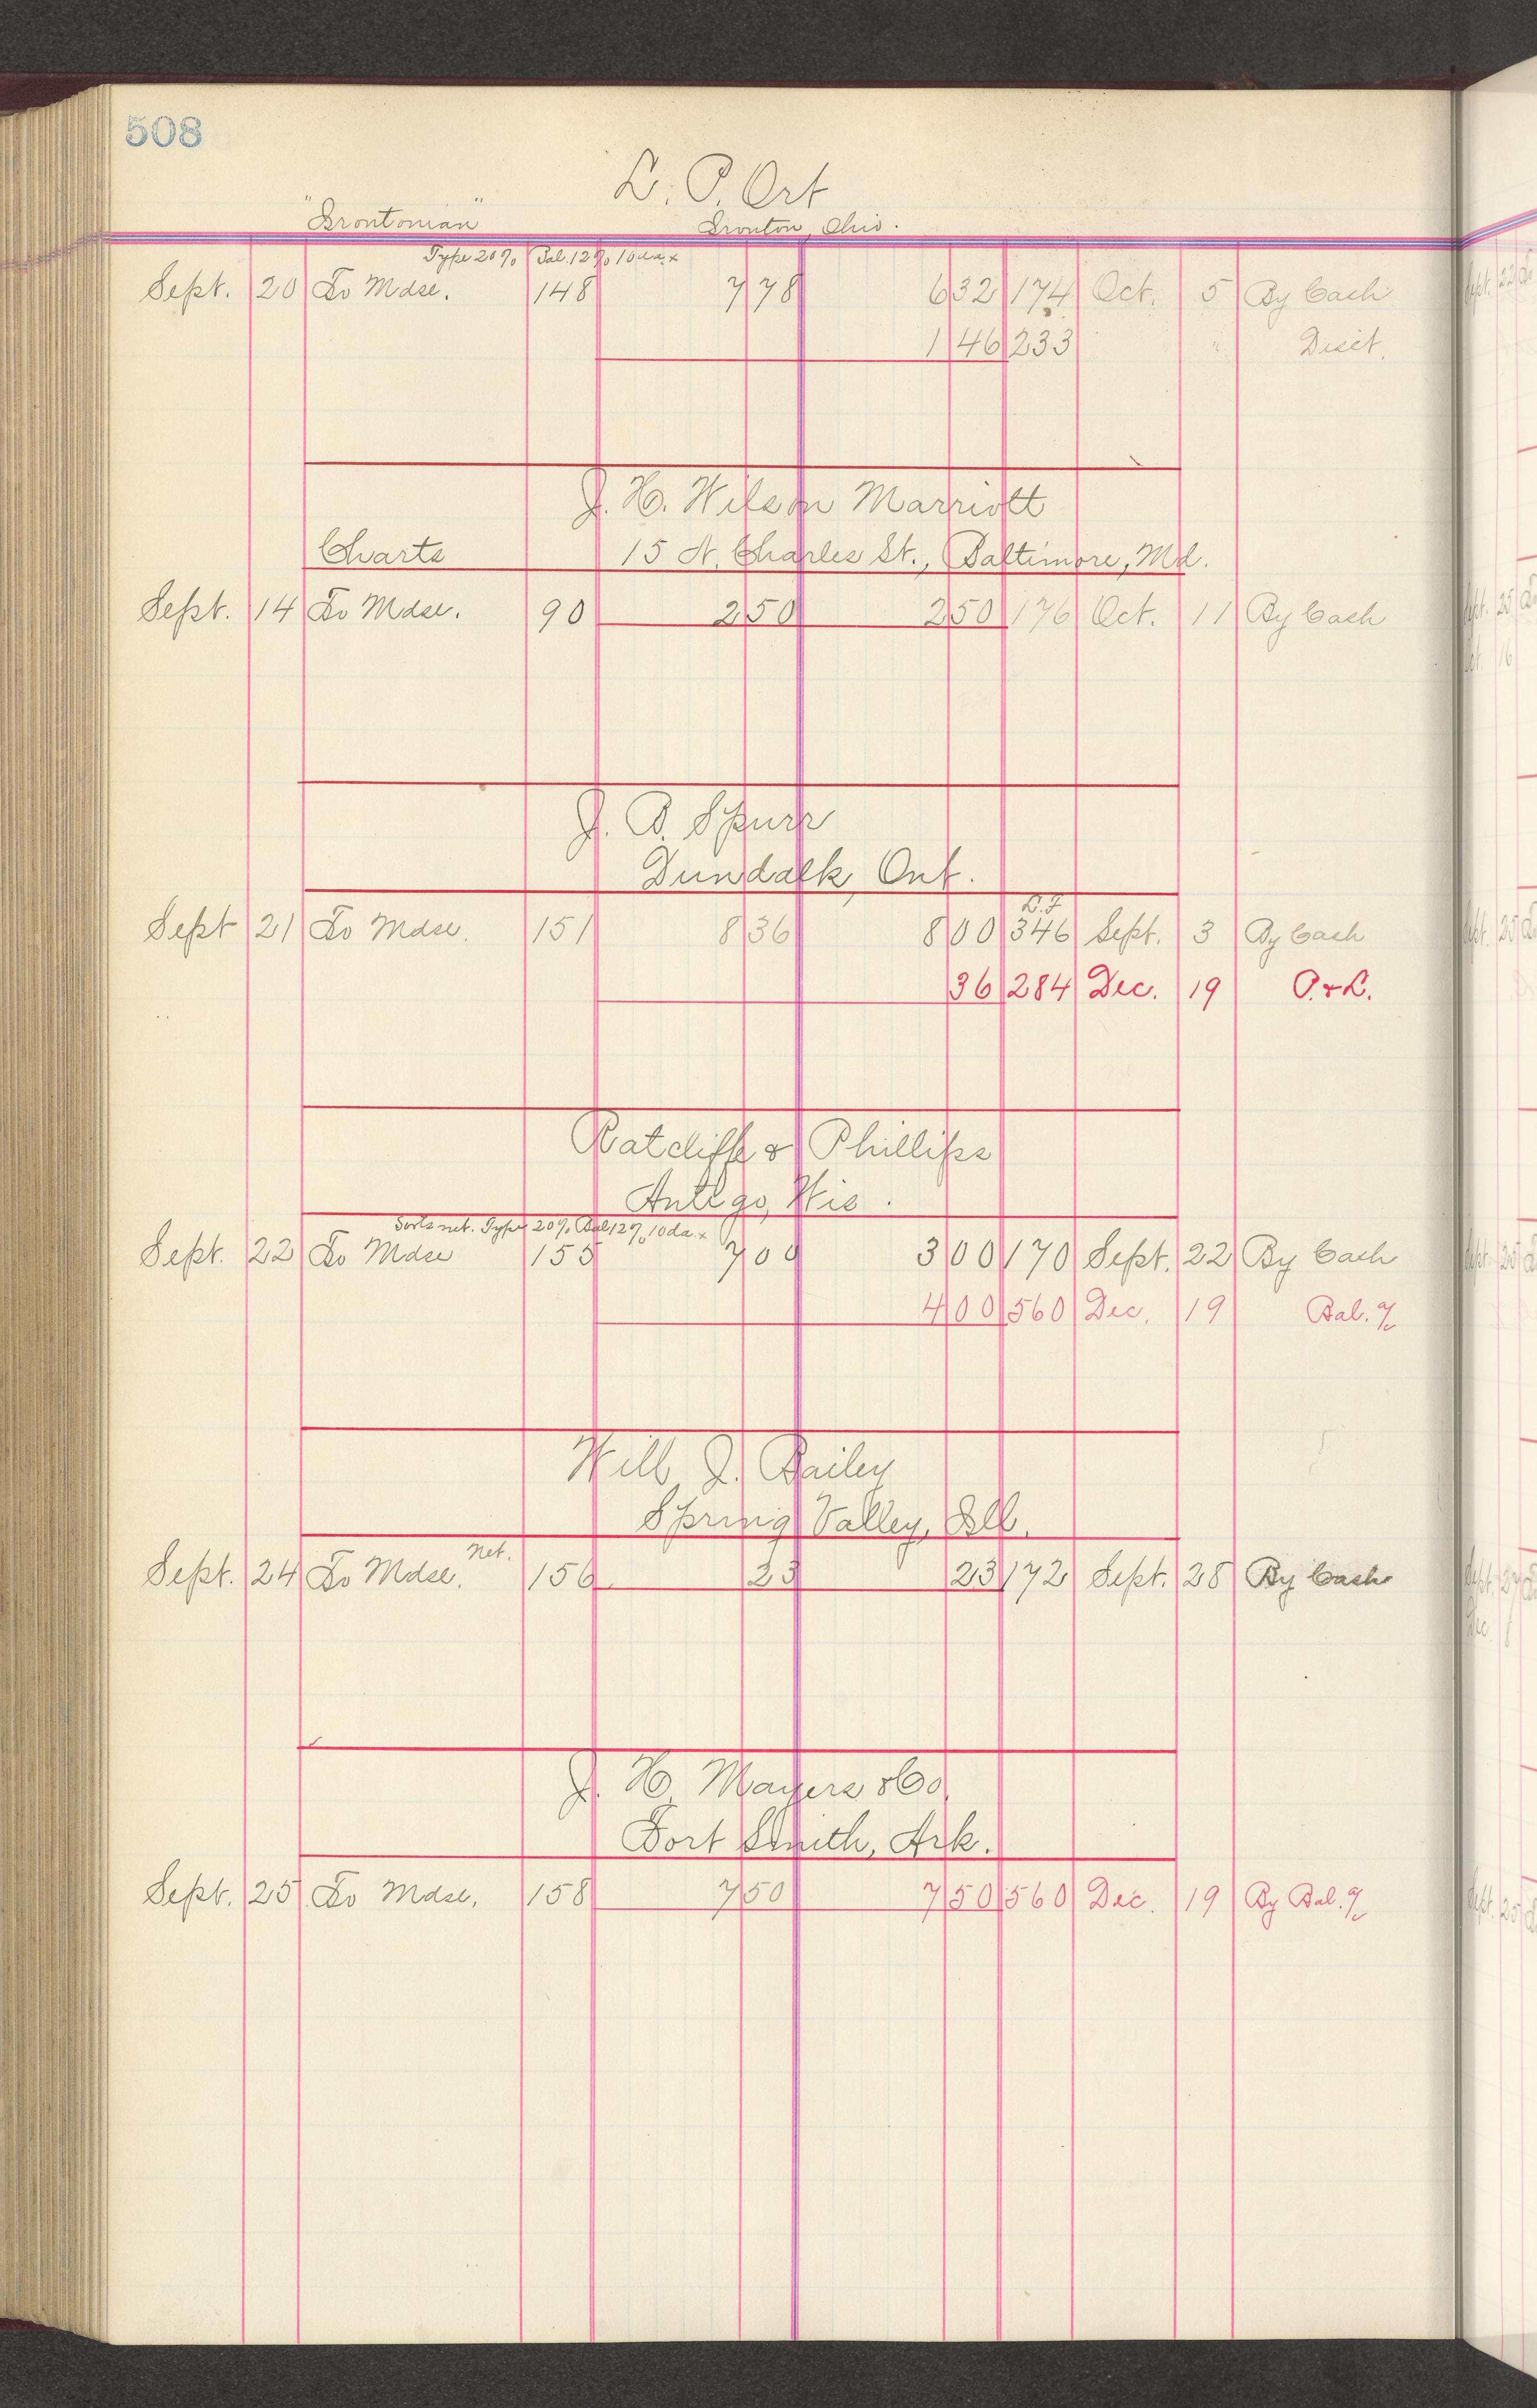 508
L. P. Ort
"Irontonian" Ironton, Ohio.
Type 20% Bal. 12% 10 da. x
Sept. 20 To Mdse. 148 7 78 6 32 174 Oct. 5 By Cash
1 46 233 " Disct.
J. H. Wilson Marriott
Charts 15 N. Charles St., Baltimore, Md.
Sept. 14 To Mdse. 90 2 50 2 50 176 Oct. 11 By Cash
J. B. Spurr
Dundalk, Ont.
Sept 21 To Mdse. 151 8 36 8 00 346 Sept. 3 By Cash
36 284 Dec. 19 P. & L.
Ratcliff & Phillips
Antigo, Wis.
Sorts net. Type 20% Bal 12% 10 da. x
Sept. 22 To Mdse 155 7 00 3 00 170 Sept. 22 By Cash
4 00 560 Dec. 19 Bal. %
Will J. Bailey
Spring Valley, Ill.
Net.
Sept. 24 To Mdse. 156 23 23 172 Sept. 28 By Cash
J. H. Mayers & Co.
Fort Smith, Ark.
Sept. 25 To Mdse. 158 7 50 7 50 560 Dec. 19 By Bal. %